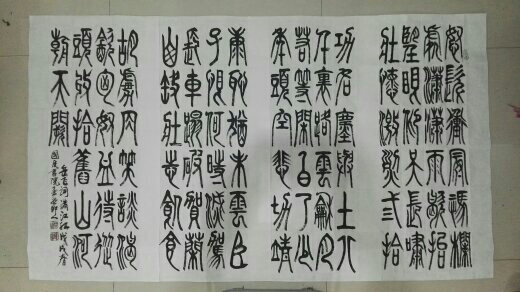 怒髮衝冠馮欄
處瀟瀟雨歇抬
望眼仰天長嘯
壯懷激烈弎拾
功名塵與土八
千里路雲和月
莫等閒白了少
年頭空悲切靖
康恥猶未雪臣
子恨何時滅駕
長車踏破賀蘭
山缺壯志飢食
胡虜肉笑談渴
飲匈奴血待從
頭收拾舊山河
朝天闕
岳飛詞滿江紅戊戌